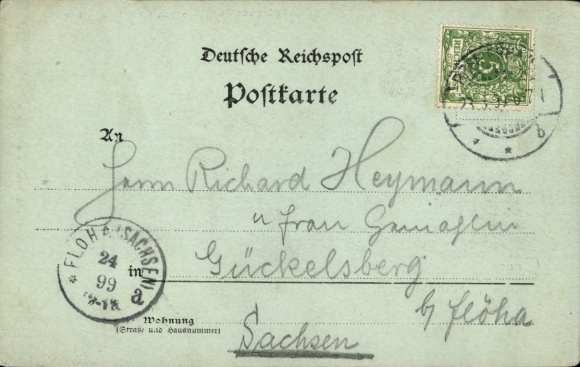 Deutsche Reichspost
Postkarte
REICHSPOST
5
An
Herrn Richard Heymann
u Frau Gemahlin
Gückelsberg
in
b/ Flöha
Sachsen
Wohnung
(Straße und Hausnummer)
FLÖHA (SACHSEN)
24
99
a